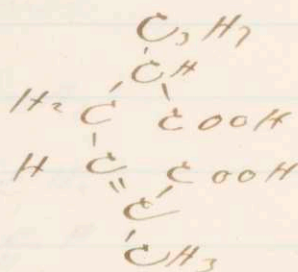 C₃H₇
CH
H₂C COOH
HC COOH
C
CH₃